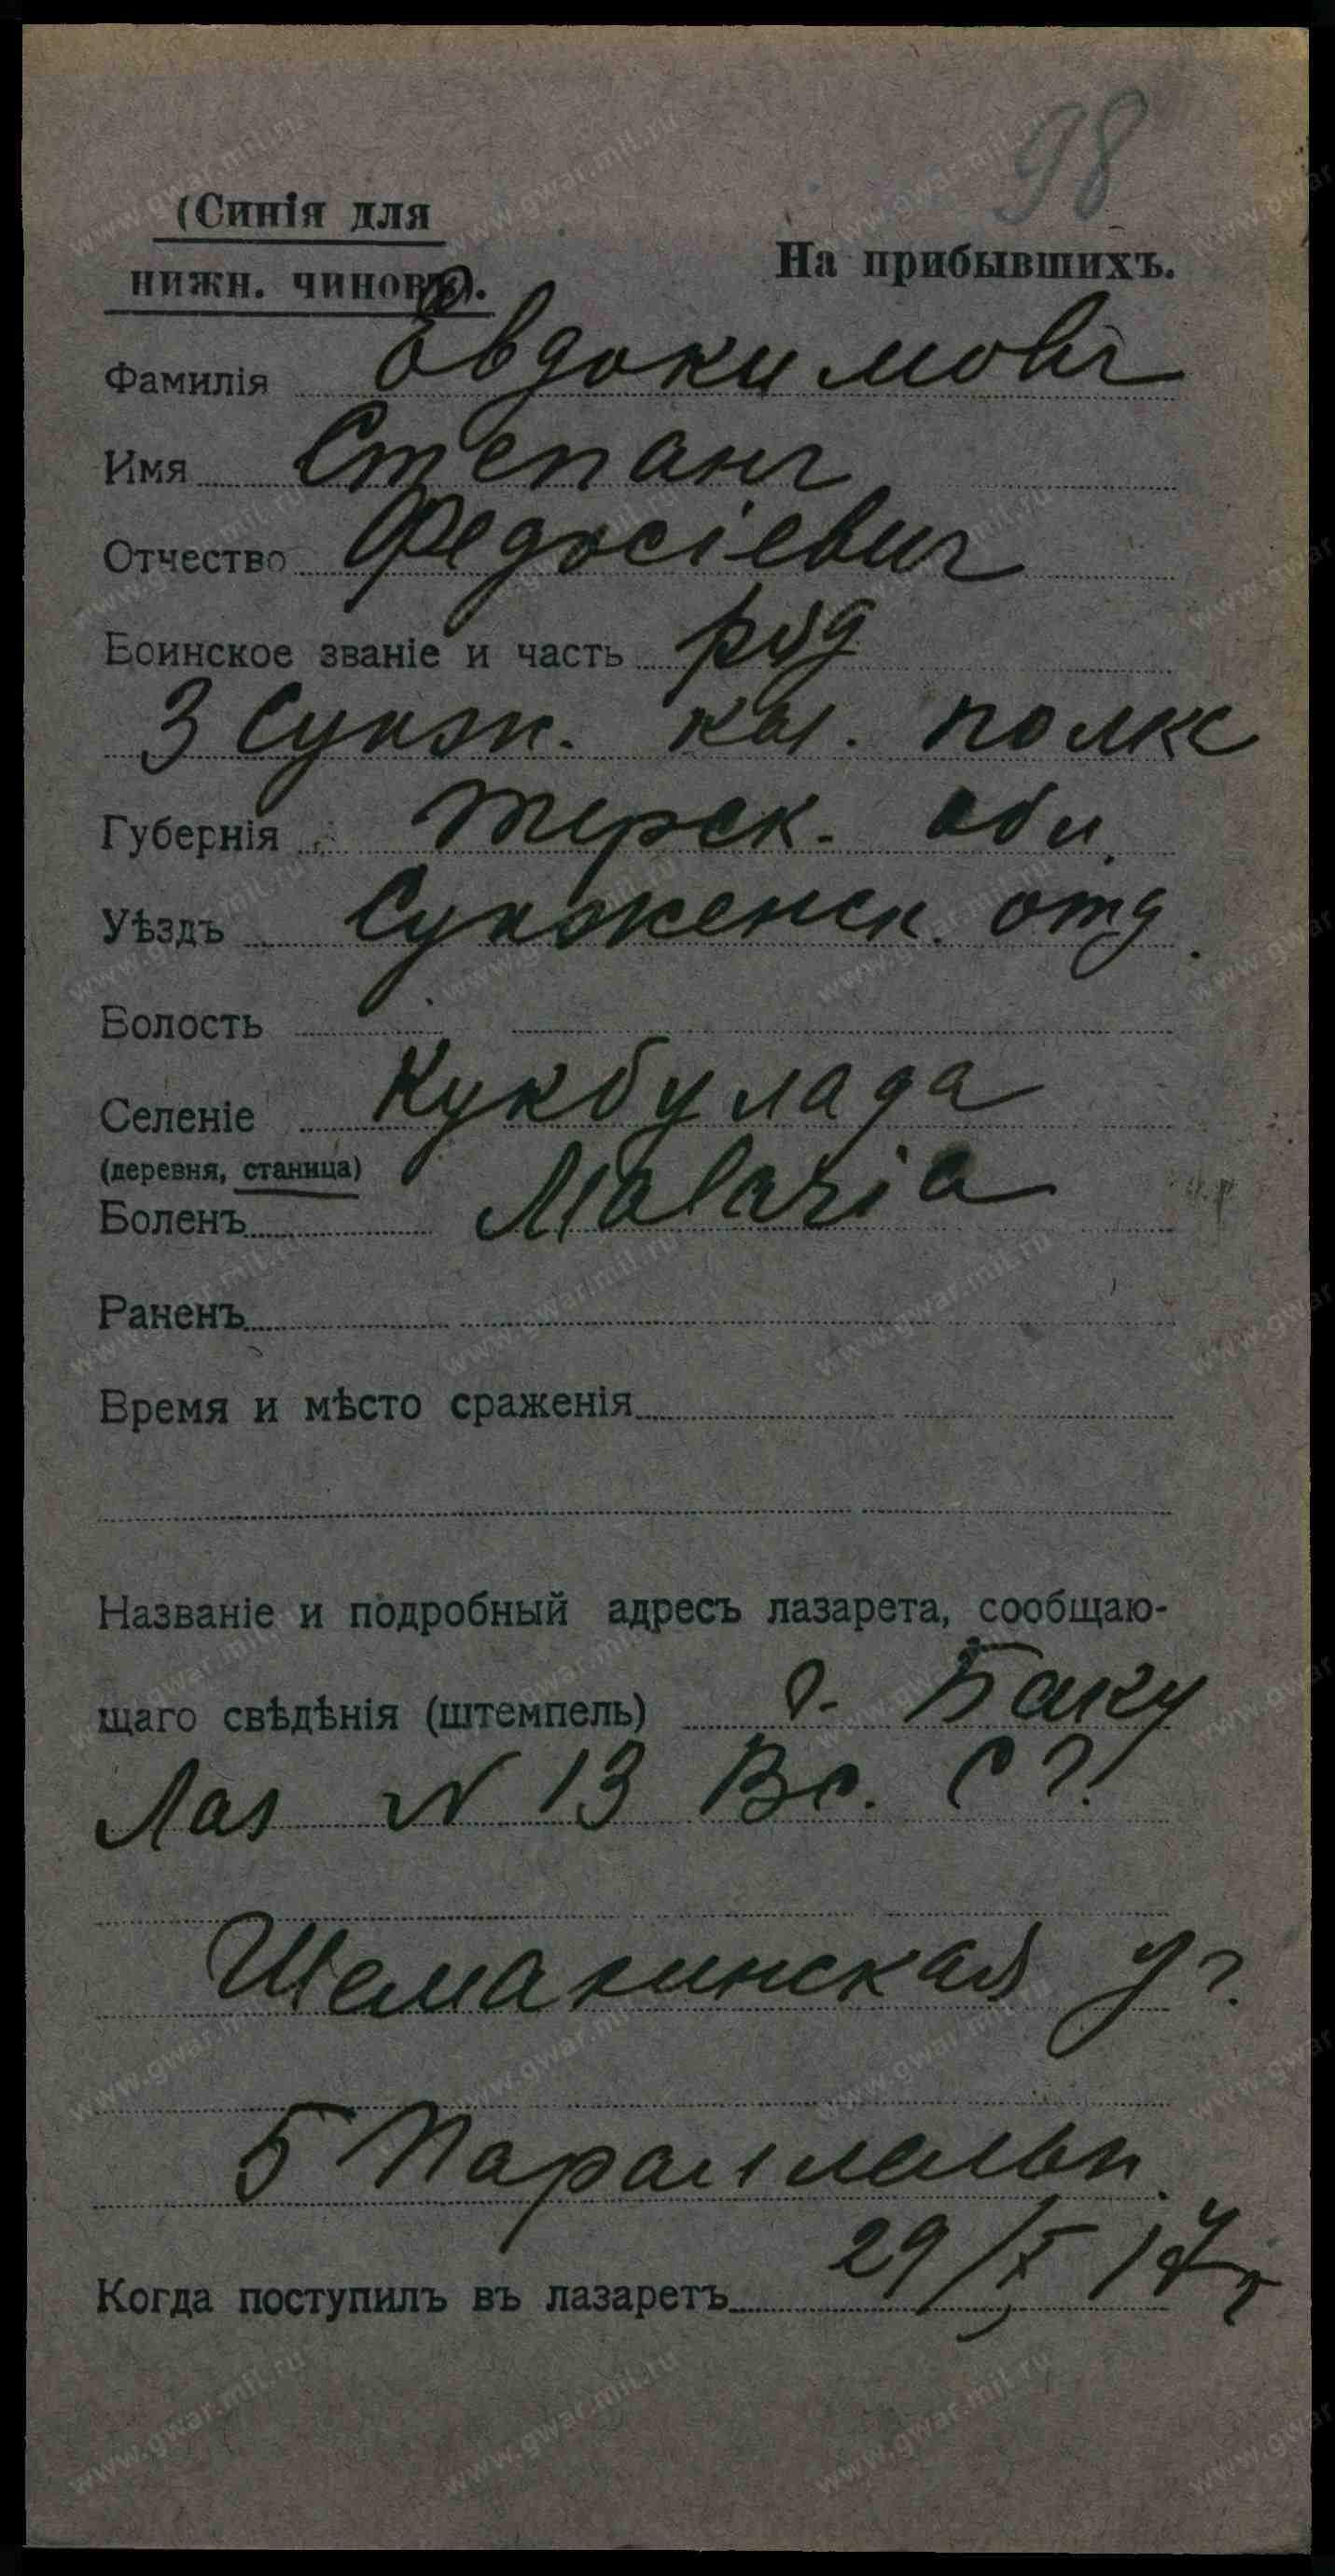 98
(Синія для
нижн. чиновъ).
На прибывшихъ.
Фамилія Евдокимовъ
Имя Степанъ
Отчество Федосіевич
Воинское званіе и часть ряд
3 Сунж. каз. полка
Губернія Терск. обл.
Уѣздъ Сунженск. отд.
Волость
Селеніе Кукбулада
(деревня, станица)
Боленъ Malaria
Раненъ
Время и мѣсто сраженія
Названіе и подробный адресъ лазарета, сообщаю-
щаго свѣдѣнія (штемпель) г. Баку
Лаз № 13 Вс. С Г.
Шемахинская ул.
5 Параллельн.
Когда поступилъ въ лазаретъ 29/X 17 г
www.gwar.mil.ru